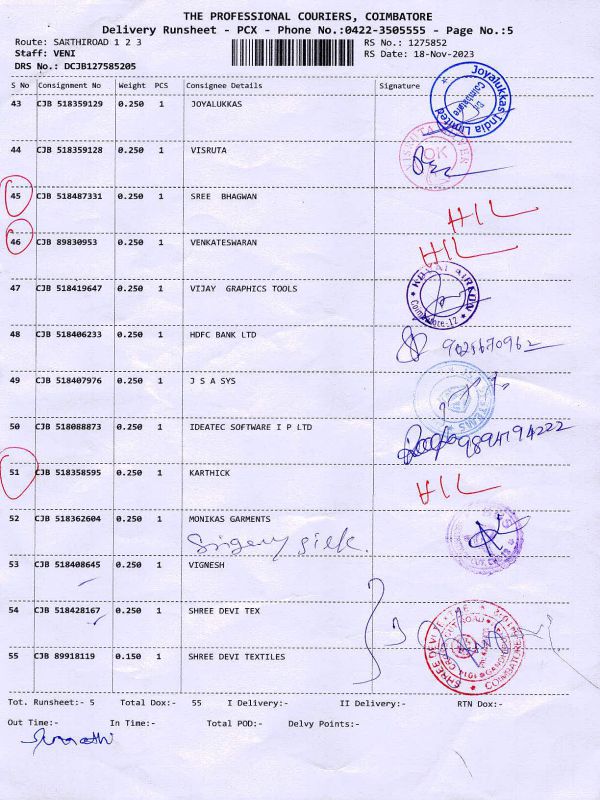 THE PROFESSIONAL COURIERS, COIMBATORE
Delivery Runsheet - PCX - Phone No.:0422-3505555 - Page No.:5
Route: SARTHIROAD 1 2 3 RS No.: 1275852
Staff: VENI RS Date: 18-Nov-2023
DRS No.: DCJB127585205
S No Consignment No Weight PCS Consignee Details Signature
43 CJB 518359129 0.250 1 JOYALUKKAS
Joyalukkas India Limited
Coimbatore
44 CJB 518359128 0.250 1 VISRUTA
OK
45 CJB 518487331 0.250 1 SREE BHAGWAN
HIL
46 CJB 89830953 0.250 1 VENKATESWARAN
HIL
47 CJB 518419647 0.250 1 VIJAY GRAPHICS TOOLS
Coimbatore-12
48 CJB 518406233 0.250 1 HDFC BANK LTD
49 CJB 518407976 0.250 1 J S A SYS
50 CJB 518088873 0.250 1 IDEATEC SOFTWARE I P LTD
9894194222
51 CJB 518358595 0.250 1 KARTHICK
HIL
52 CJB 518362604 0.250 1 MONIKAS GARMENTS
silk.
53 CJB 518408645 0.250 1 VIGNESH
54 CJB 518428167 0.250 1 SHREE DEVI TEX
3
SHREE DEVI TEXTILE
COIMBATORE
55 CJB 89918119 0.150 1 SHREE DEVI TEXTILES
Tot. Runsheet:- 5 Total Dox:- 55 I Delivery:- II Delivery:- RTN Dox:-
Out Time:- In Time:- Total POD:- Delvy Points:-